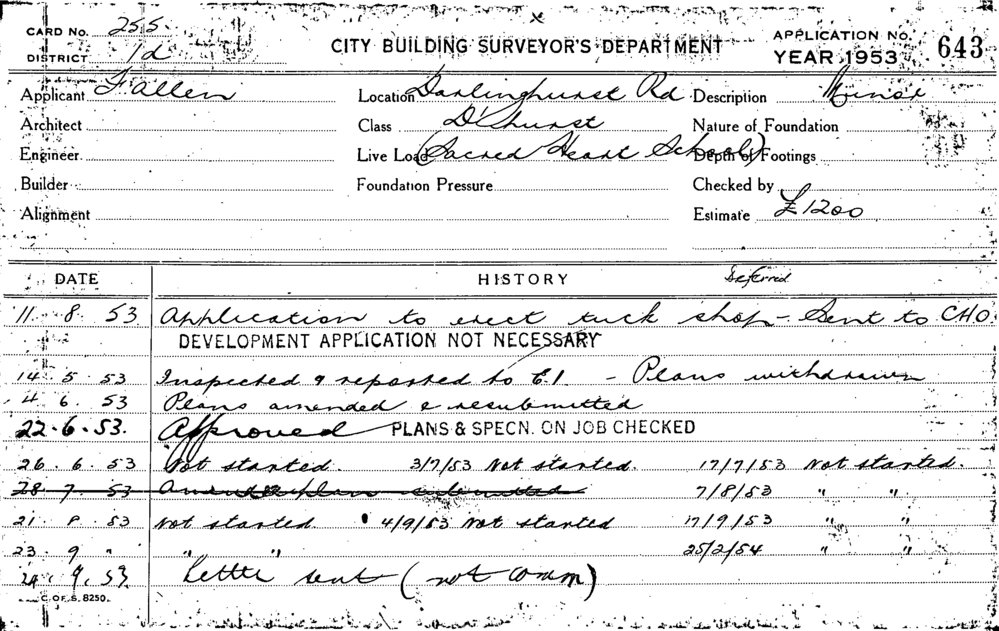 CARD No. 255
DISTRICT 1d
CITY BUILDING SURVEYOR'S DEPARTMENT
APPLICATION No. 643
YEAR 1953
Applicant Fallen Location Darlinghurst Rd Description Minor
Architect Class D'hurst Nature of Foundation
Engineer Live Load (Sacred Heart School) Depth of Footings
Builder Foundation Pressure Checked by
Alignment Estimate £1200
DATE HISTORY Deferred
11 . 8 . 53 Application to erect tuck shop - Sent to CHO.
DEVELOPMENT APPLICATION NOT NECESSARY
14 . 5 . 53 Inspected & reported to E.I. - Plans withdrawn
4 . 6 . 53 Plans amended & resubmitted
22 . 6 . 53. Approved PLANS & SPECN. ON JOB CHECKED
26 . 6 . 53 Not started. 3/7/53 Not started. 17/7/53 Not started.
28 . 7 . 53 Amended plan submitted 7/8/53 " "
21 . 8 . 53 Not started 4/9/53 Not started 17/9/53 " "
23 . 9 " " " 25/2/54 " "
24 . 9 . 53 Letter sent (not comm)
C. OF S. 8250.